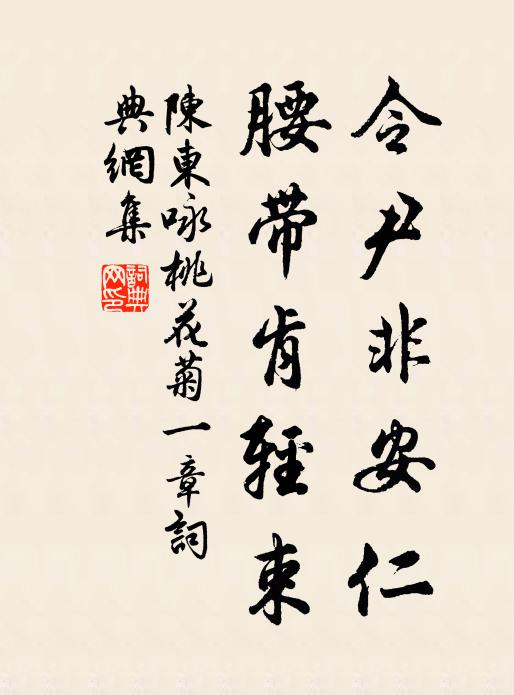 令尹非安仁
腰带肯輕束
陳東咏桃花菊一章詞
典網集
詞典网印